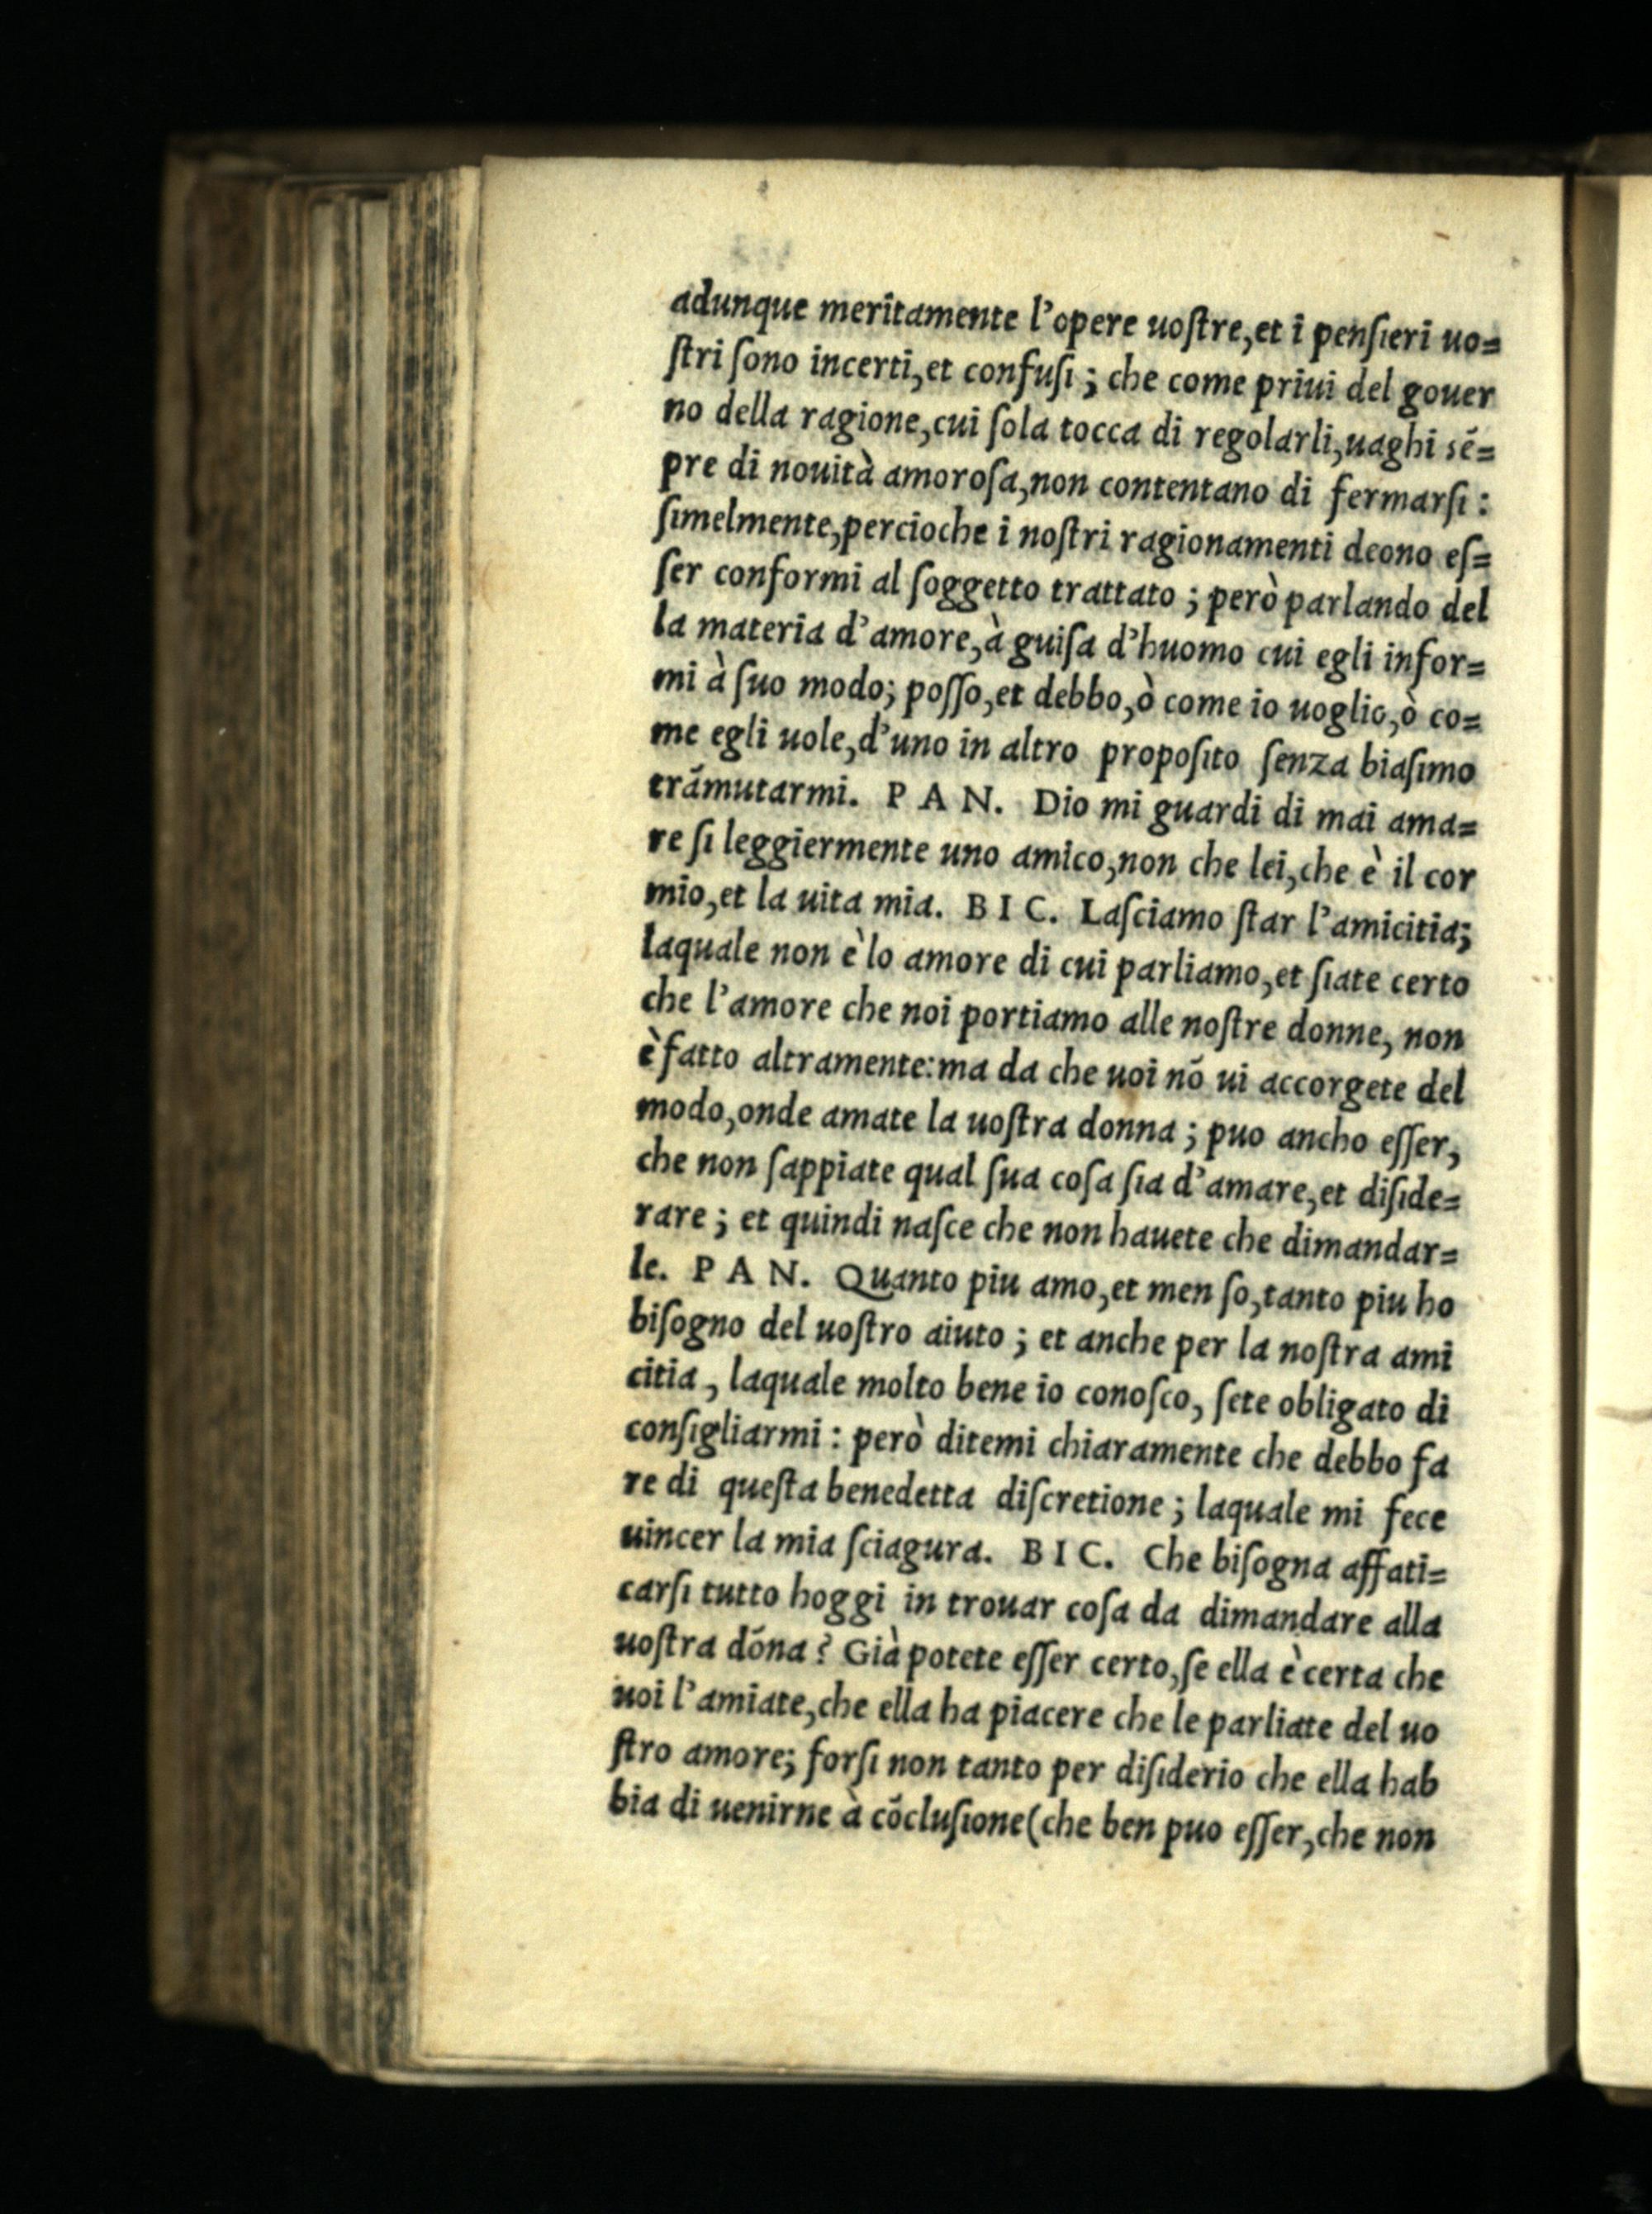 adunque meritamente l'opere uoſtre,et i penſieri uo=
ſtri ſono incerti,et confuſi ; che come priui del gouer
no della ragione,cui ſola tocca di regolarli,uaghi sē=
pre di nouità amoroſa,non contentano di fermarſi :
ſimelmente,percioche i noſtri ragionamenti deono eſ=
ſer conformi al ſoggetto trattato ; però parlando del
la materia d'amore,à guiſa d'huomo cui egli infor=
mi à ſuo modo; poſſo,et debbo,ò come io uoglio,ò co=
me egli uole,d'uno in altro propoſito ſenza biaſimo
trāmutarmi. P A N. Dio mi guardi di mai ama=
re ſi leggiermente uno amico,non che lei,che è il cor
mio,et la uita mia. B I C. Laſciamo ſtar l'amicitia;
laquale non è lo amore di cui parliamo,et ſiate certo
che l'amore che noi portiamo alle noſtre donne, non
è fatto altramente:ma da che uoi nō ui accorgete del
modo,onde amate la uoſtra donna ; puo ancho eſſer,
che non ſappiate qual ſua coſa ſia d'amare,et diſide=
rare ; et quindi naſce che non hauete che dimandar=
le. P A N. Quanto piu amo,et men ſo,tanto piu ho
biſogno del uoſtro aiuto ; et anche per la noſtra ami
citia , laquale molto bene io conoſco, ſete obligato di
conſigliarmi : però ditemi chiaramente che debbo fa
re di queſta benedetta diſcretione ; laquale mi fece
uincer la mia ſciagura. B I C. Che biſogna affati=
carſi tutto hoggi in trouar coſa da dimandare alla
uoſtra dōna ? Già potete eſſer certo,ſe ella è certa che
uoi l'amiate,che ella ha piacere che le parliate del uo
ſtro amore; forſi non tanto per diſiderio che ella hab
bia di uenirne à cōcluſione(che ben puo eſſer,che non